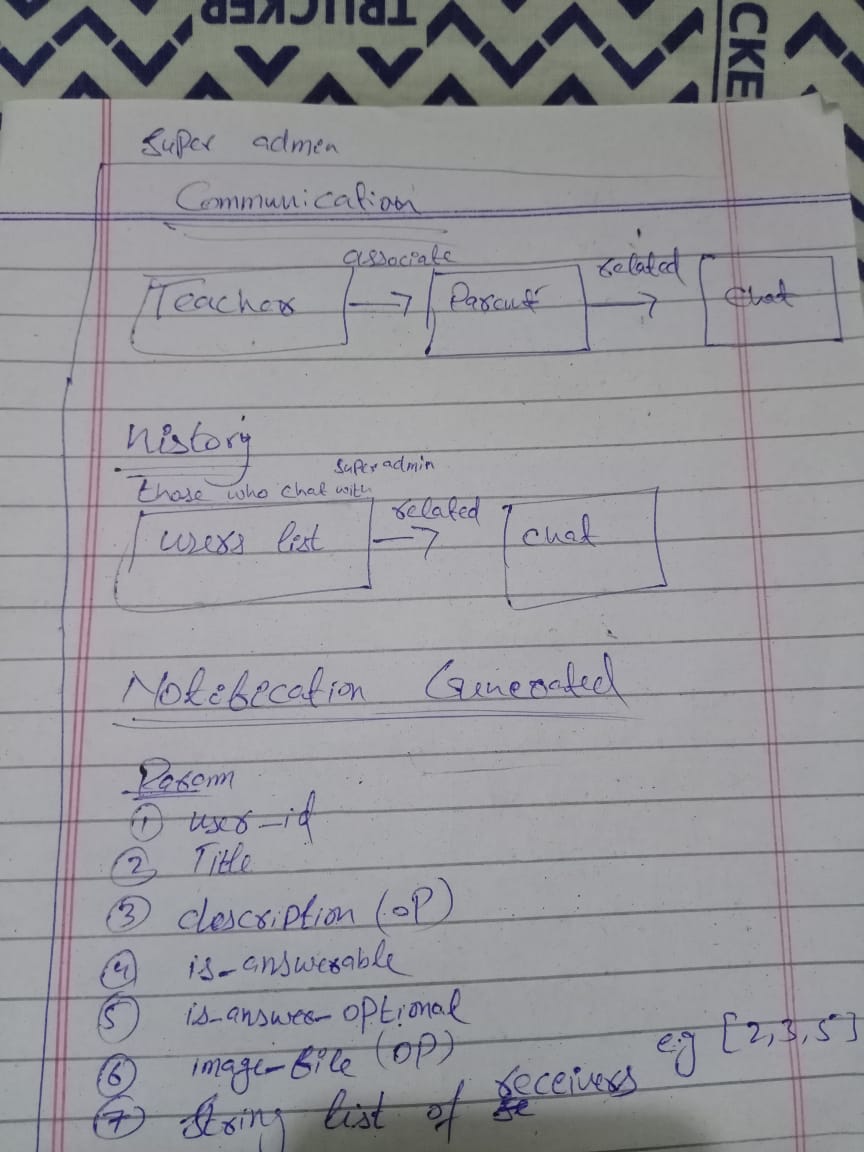 TRUCKER
CKE
Super admin
Communication
associate
related
Teacher → Parent → Chat
History
Superadmin
those who chat with
related
users list → chat
Notification Generated
Param
① user_id
② Title
③ description (OP)
④ is_answerable
⑤ is_answer_optional
⑥ image_file (OP)
⑦ string list of receivers e.g [2,3,5]